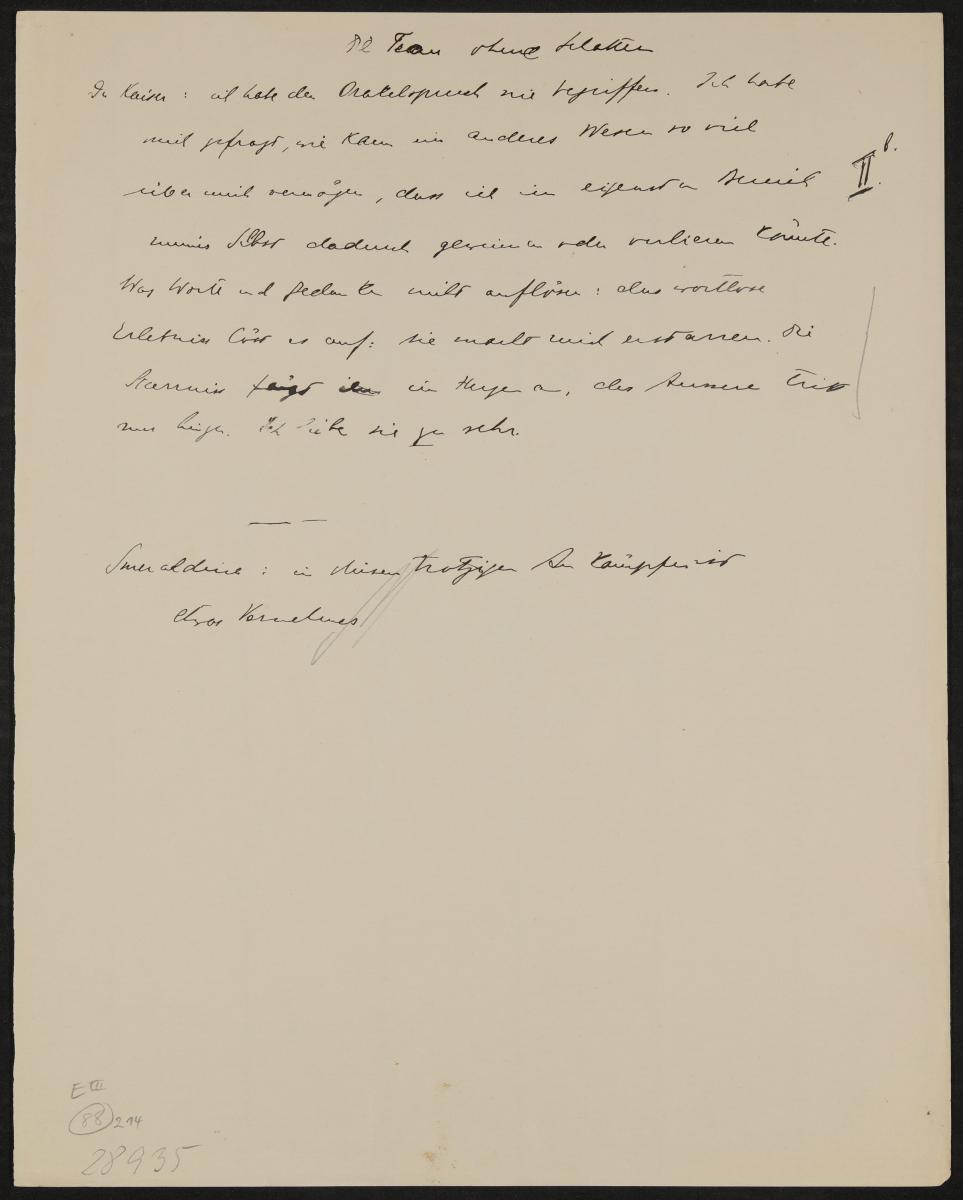 Die Frau ohne Schatten
Der Kaiser: ich habe den Orakelspruch nie begriffen. Ich habe
mich gefragt, wie kann ein anderes Wesen so viel
über mich vermögen, dass ich im eigensten Bereich
meines Selbst dadurch gewinnen oder verlieren könnte.
II b.
Was Worte und Gedanken nicht auflösen: das wortlose
Erlebniss löst es auf: sie macht mich erstarren. Die
Starrniss fängt im Herzen an, das Aeussere tritt
nur hinzu. Ich liebe sie zu sehr.
Smeraldine: in diesem trotzigen Kämpfen ist
etwas Vornehmes
E III
88 214
28935